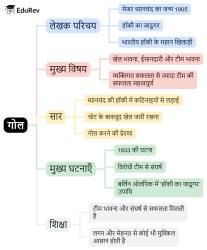 EduRev
मेजर ध्यानचंद का जन्म 1905
लेखक परिचय
हॉकी का जादूगर
भारतीय हॉकी के महान खिलाड़ी
खेल भावना, ईमानदारी और टीम भावना
मुख्य विषय
व्यक्तिगत सफलता से ज्यादा टीम की
सफलता महत्वपूर्ण
ध्यानचंद की हॉकी में कठिनाइयों से लड़ाई
सार
चोट के बावजूद खेल जारी रखना
गोल करने की प्रेरणा
गोल
1933 की घटना
मुख्य घटनाएँ
विरोधी टीम से संघर्ष
बर्लिन ओलंपिक में 'हॉकी का जादूगर'
उपाधि
टीम भावना और संघर्ष से सफलता मिलती
है
शिक्षा
लगन और मेहनत से कोई भी मुश्किल
आसान होती है